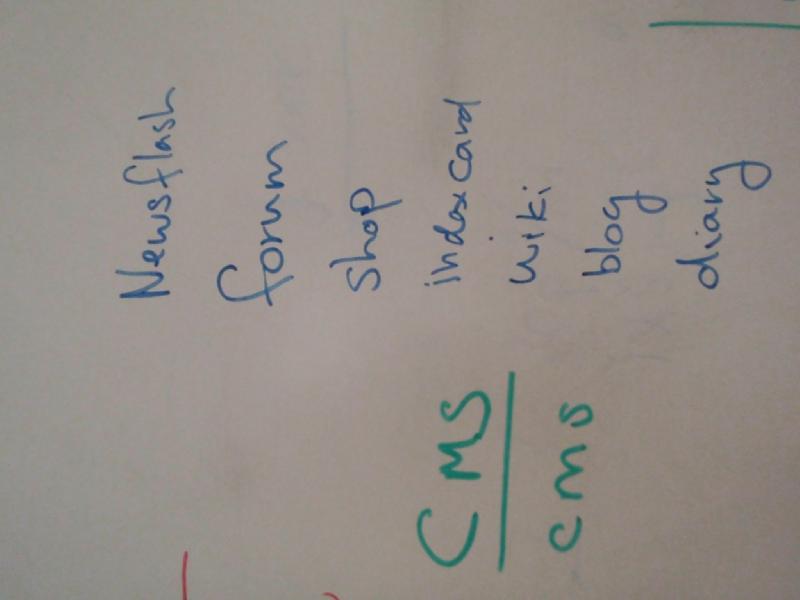 Newsflash
forum
shop
indexcard
wiki
blog
diary
CMS
cms